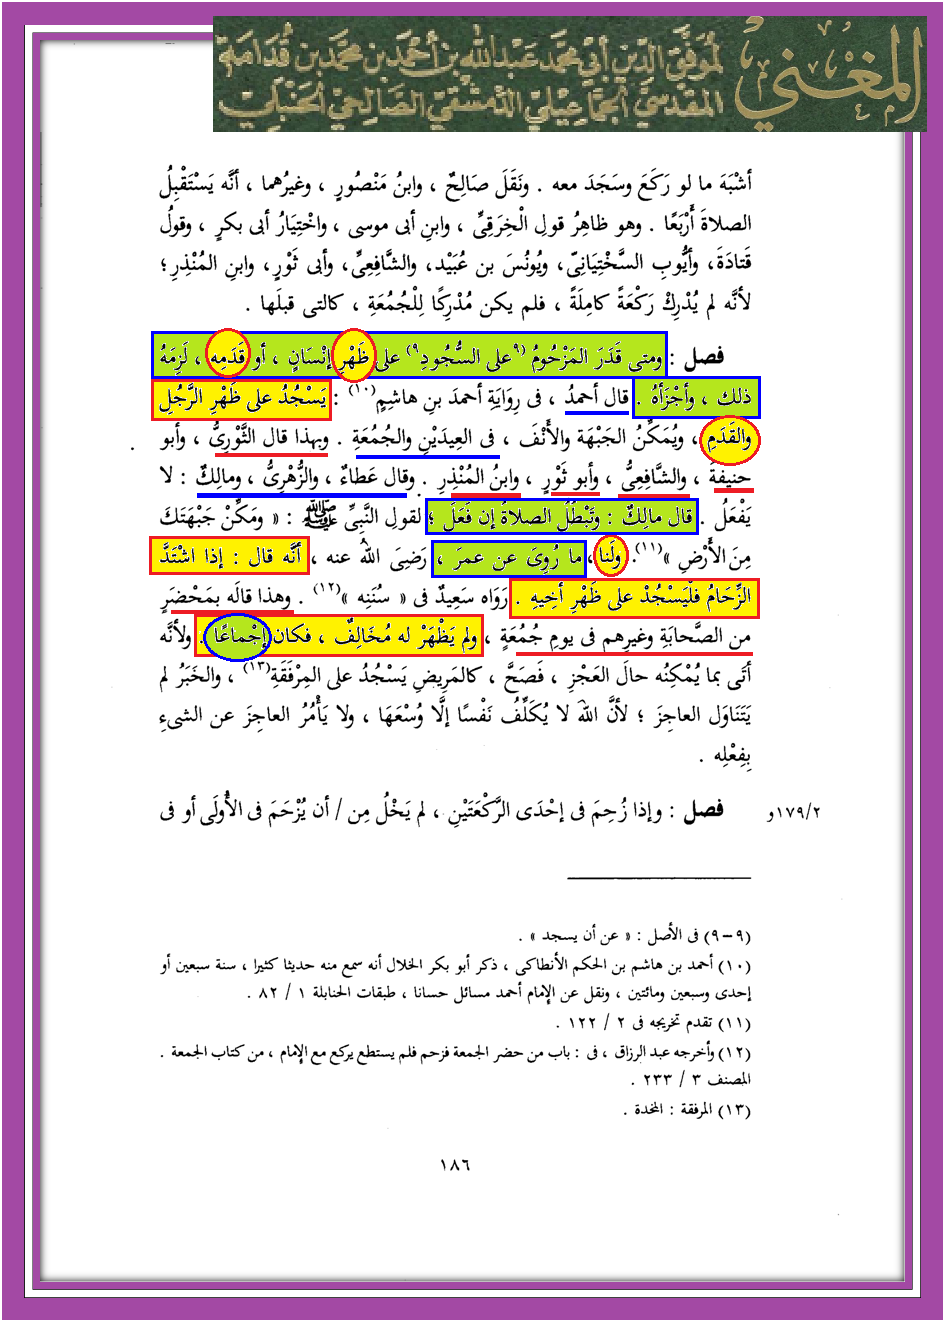 المغني
لموفق الدين أبي محمد عبد الله بن أحمد بن محمد بن قدامة
المقدسي الجماعيلي الدمشقي الصالحي الحنبلي
أشْبَهَ ما لو رَكَعَ وسَجَدَ معه . ونَقَلَ صَالِحٌ ، وابنُ مَنْصُورٍ ، وغيرُهما ، أنَّه يَسْتَقْبِلُ
الصلاةَ أَرْبَعًا . وهو ظاهِرُ قولِ الْخِرَقِىِّ ، وابنِ أبى موسى ، واخْتِيَارُ أبى بكرٍ ، وقولُ
قَتادَةَ ، وأيُّوبِ السَّخْتِيَانِىِّ، ويُونُسَ بن عُبَيْد، والشَّافِعِىِّ، وأبى ثَوْرٍ، وابنِ المُنْذِرِ؛
لأنَّه لم يُدْرِكْ رَكْعَةً كامِلَةً ، فلم يكن مُدْرِكًا لِلْجُمُعَةِ ، كالتى قبلَها .
فصل : ومتى قَدَرَ المَزْحُومُ (٩على السُّجُودِ٩) على ظَهْرِ إنْسَانٍ ، أو قَدَمِه ، لَزِمَهُ
ذلك ، وأجْزَأهُ . قال أحمدُ ، فى رِوَايَةِ أحمدَ بنِ هاشِمٍ(١٠) : يَسْجُدُ على ظَهْرِ الرَّجُلِ
والقَدَمِ ، ويُمَكِّنُ الجَبْهَةَ والأَنْفَ ، فى العِيدَيْنِ والجُمُعَةِ . وبهذا قال الثَّوْرِىُّ ، وأبو
حنيفةَ ، والشَّافِعِىُّ ، وأبو ثَوْرٍ ، وابنُ المُنْذِرِ . وقال عَطاءٌ ، والزُّهْرِىُّ ، ومالِكٌ : لا
يَفْعَلُ . قال مالِكٌ : وتَبْطُلُ الصلاةُ إن فَعَلَ ؛ لقولِ النَّبِىِّ ﷺ : « ومَكِّنْ جَبْهَتَكَ
مِنَ الأَرْضِ »(١١). ولَنا، ما رُوِىَ عن عمرَ ، رَضِىَ اللهُ عنه ، أنَّه قال : إذا اشْتَدَّ
الزِّحَامُ فلْيَسْجُدْ على ظَهْرِ أخِيهِ . رَوَاه سَعِيدٌ فى « سُنَنِه »(١٢) . وهذا قالَه بمَحْضَرٍ
من الصَّحابَةِ وغيرِهم فى يومِ جُمُعَةٍ ، ولم يَظْهَرْ له مُخَالِفٌ ، فكان إجْماعًا . ولأنَّه
أتَى بما يُمْكِنُه حالَ العَجْزِ ، فصَحَّ ، كالمَرِيضِ يَسْجُدُ على المِرْفَقَةِ(١٣) ، والخَبَرُ لم
يَتَنَاوَلِ العاجِزَ ؛ لأنَّ اللهَ لا يُكَلِّفُ نَفْسًا إلَّا وُسْعَهَا ، ولا يَأْمُرُ العاجِزَ عن الشىءِ
بِفِعْلِه .
فصل : وإذا زُحِمَ فى إحْدَى الرَّكْعَتَيْنِ ، لم يَخْلُ مِن / أن يُزْحَمَ فى الأُولَى أو فى
١٧٩/٢و
(٩-٩) فى الأصل : « عن أن يسجد » .
(١٠) أحمد بن هاشم بن الحكم الأنطاكى ، ذكر أبو بكر الخلال أنه سمع منه حديثا كثيرا ، سنة سبعين أو
إحدى وسبعين ومائتين ، ونقل عن الإمام أحمد مسائل حسانا ، طبقات الحنابلة ١ / ٨٢ .
(١١) تقدم تخريجه فى ٢ / ١٢٢ .
(١٢) وأخرجه عبد الرزاق ، فى : باب من حضر الجمعة فزحم فلم يستطع يركع مع الإمام ، من كتاب الجمعة .
المصنف ٣ / ٢٣٣ .
(١٣) المرفقة : المخدة .
١٨٦